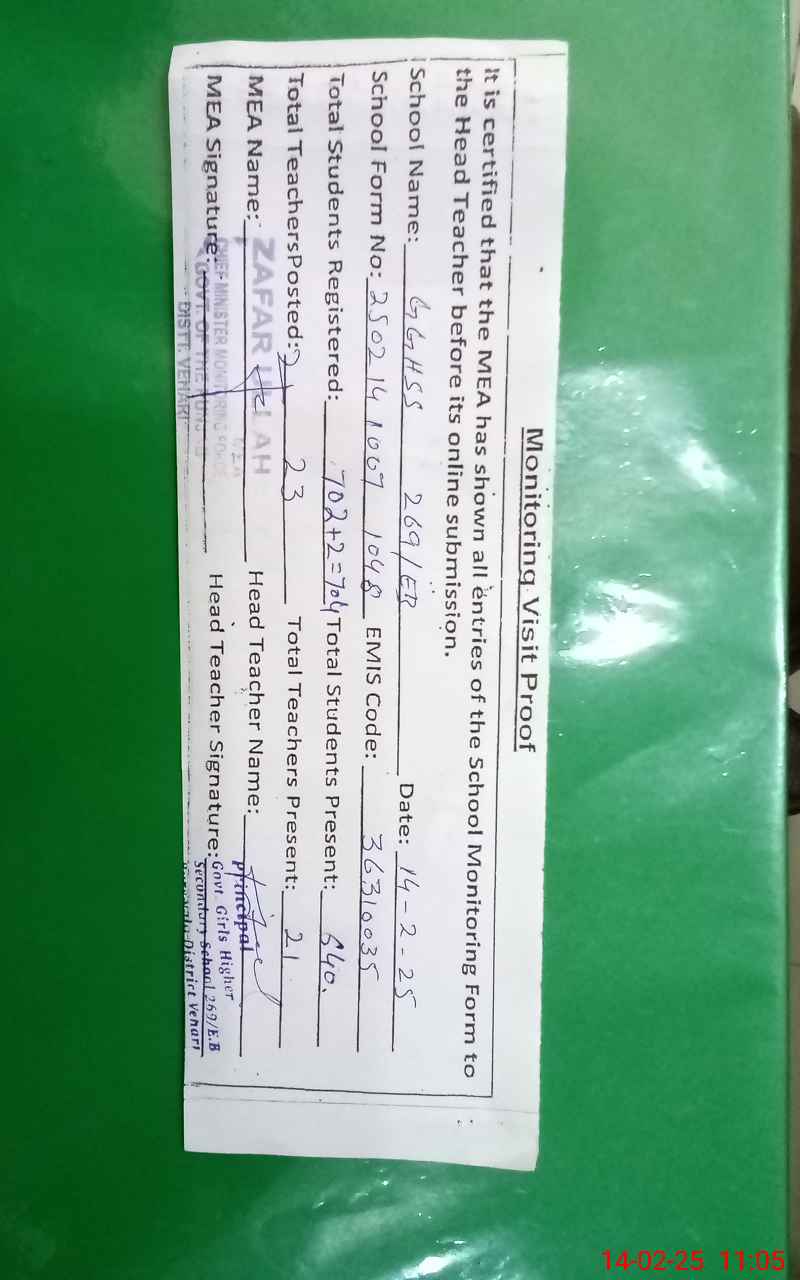 Monitoring Visit Proof
It is certified that the MEA has shown all entries of the School Monitoring Form to
the Head Teacher before its online submission.
School Name: GGHSS 269/EB Date: 14-2-25
School Form No: 2502141067 1048 EMIS Code: 36310035
Total Students Registered: 702+2=704 Total Students Present: 640.
Total TeachersPosted: 23 Total Teachers Present: 21
MEA Name: ZAFAR ULLAH Head Teacher Name:
MEA Signature: Head Teacher Signature:
CHIEF MINISTER MONITORING FORCE
GOVT. OF THE PUNJAB
DISTT. VEHARI
Principal
Govt. Girls Higher
Secondary School 269/E.B
District Vehari
14-02-25 11:05